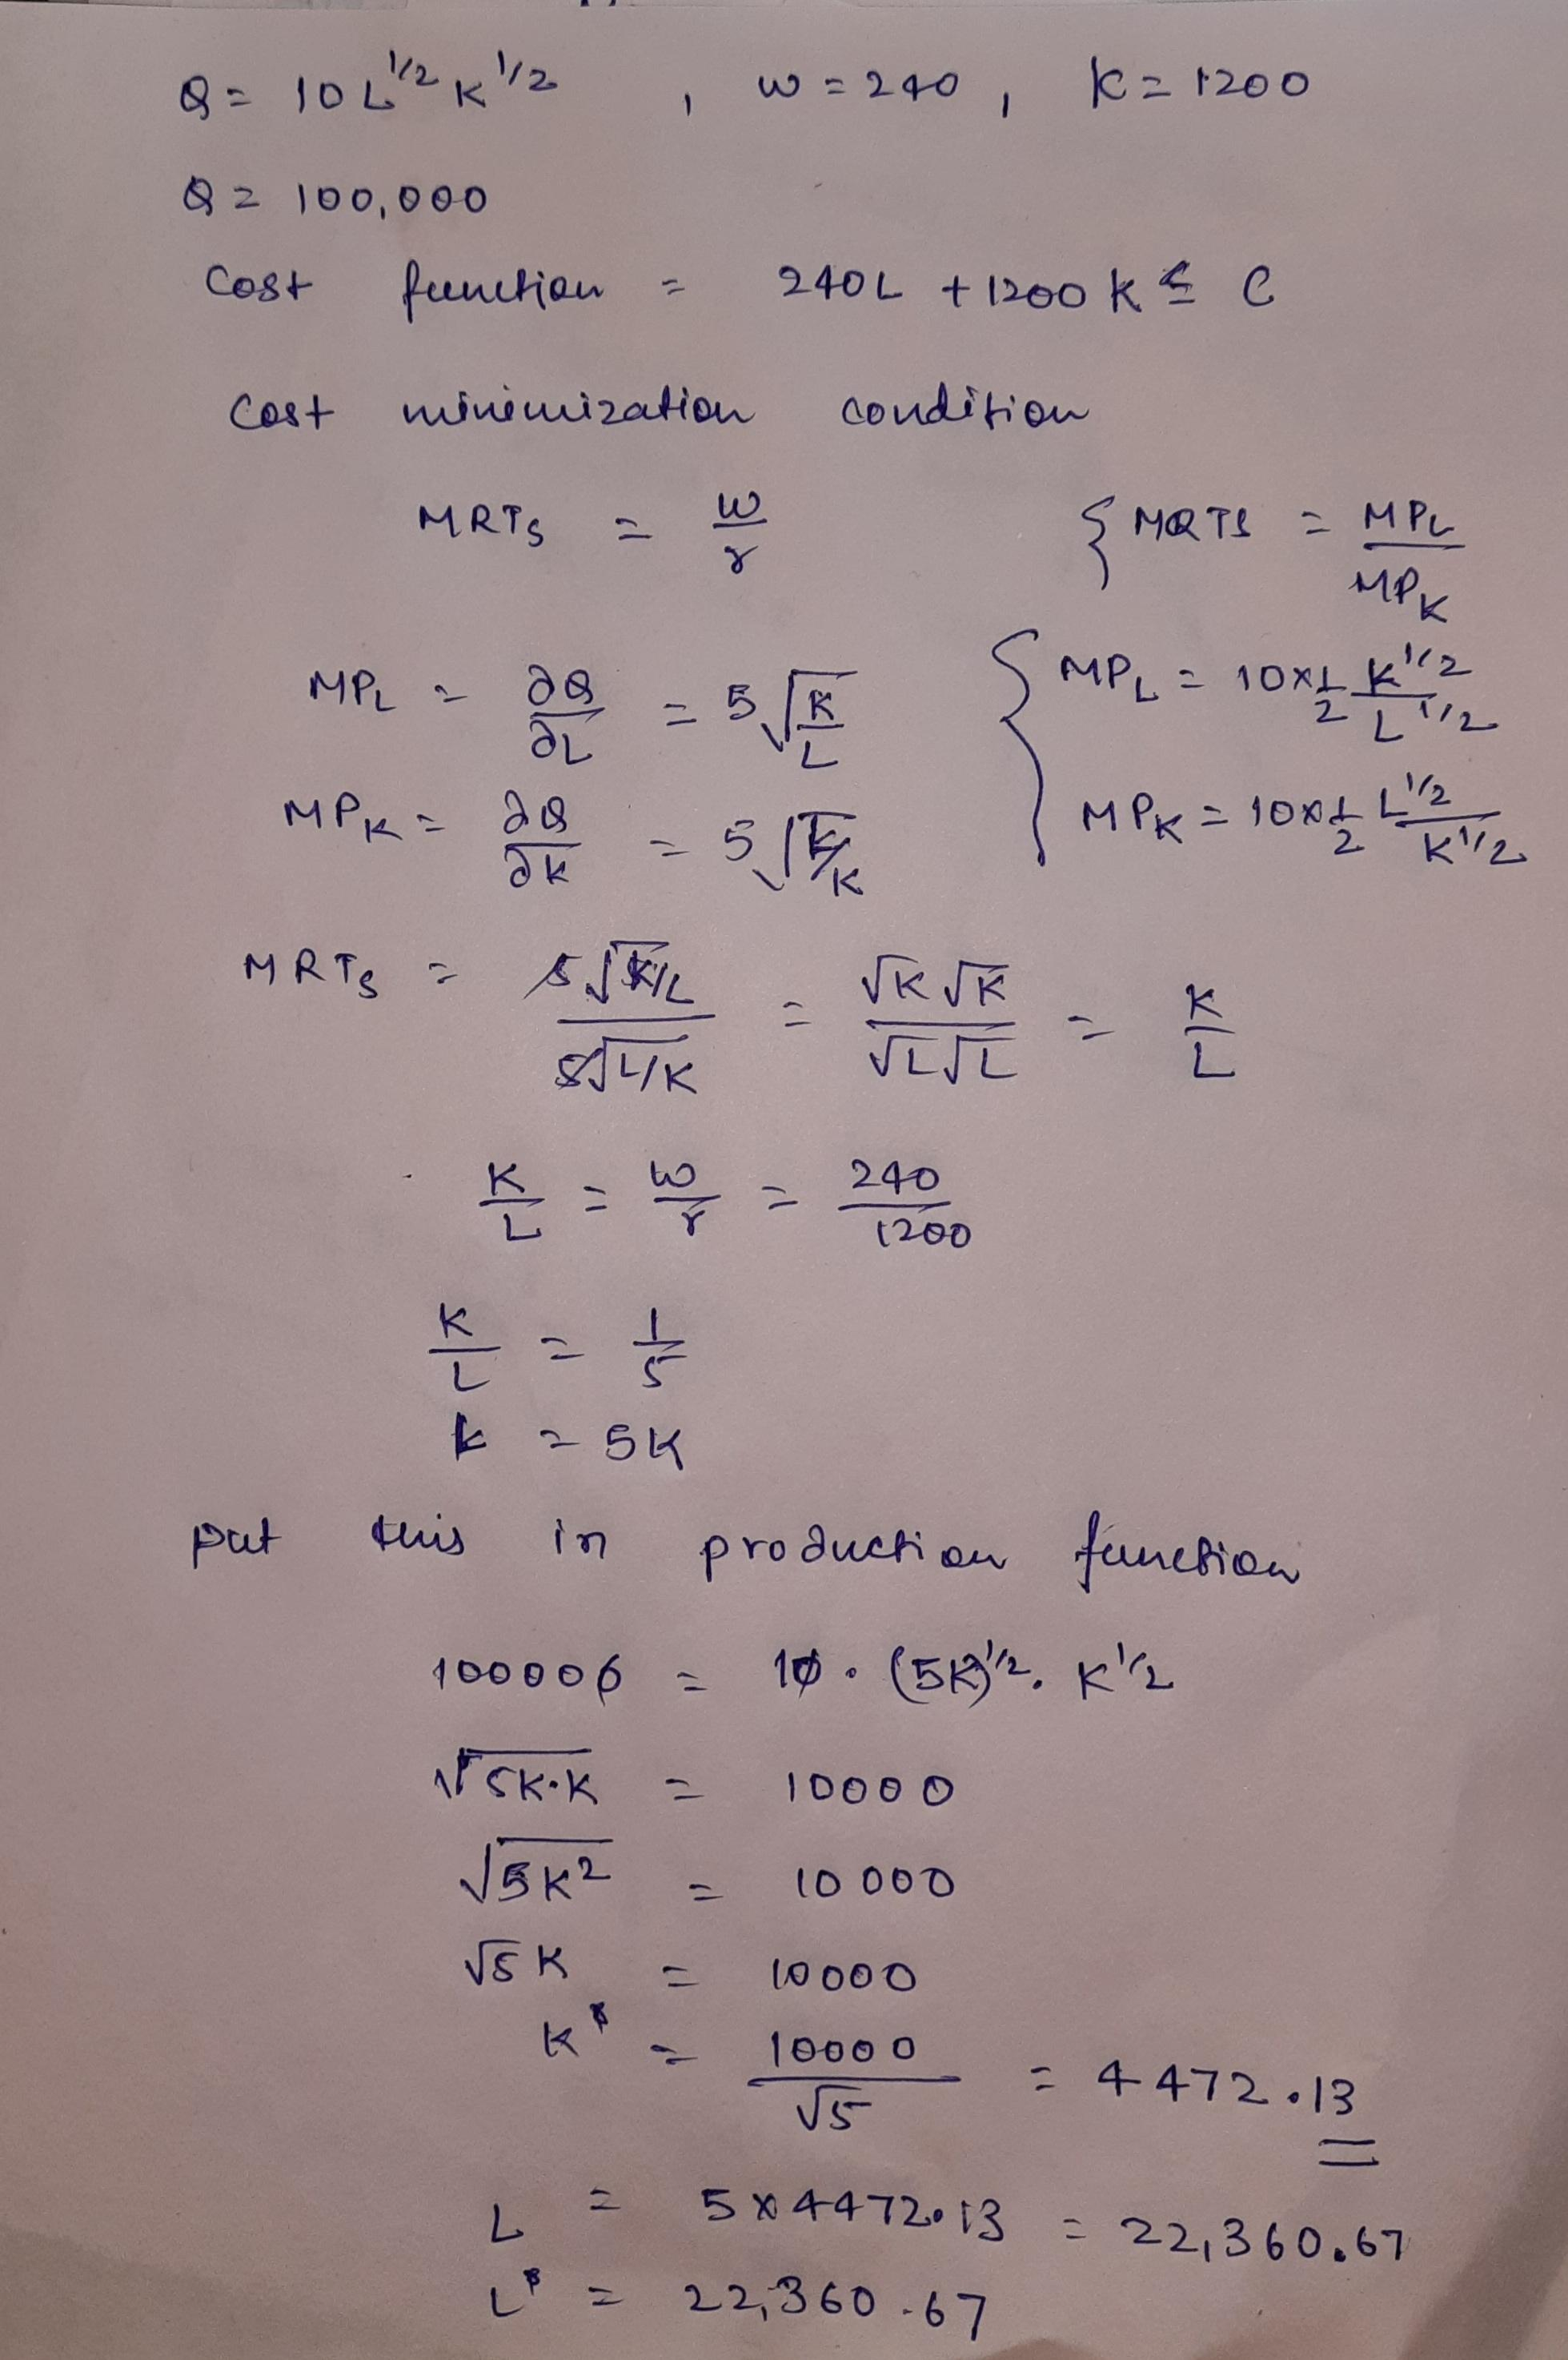 Q = 10 L^1/2 K^1/2 , w = 240 , K = 1200
Q = 100,000
Cost function = 240L + 1200 K ≤ C
Cost minimization condition
MRTS = w/r { MRTS = MPL/MPK
MPL = ∂Q/∂L = 5√(K/L) { MPL = 10×1/2 K^1/2/L^1/2
MPK = ∂Q/∂K = 5√(L/K) MPK = 10×1/2 L^1/2/K^1/2
MRTS = 5√(K/L) / 5√(L/K) = √K √K / √L √L = K/L
K/L = w/r = 240/1200
K/L = 1/5
k = 5K
put this in production function
100000 = 10 . (5K)^1/2 . K^1/2
√(5K.K) = 10000
√(5K²) = 10000
√5 K = 10000
K* = 10000/√5 = 4472.13
L = 5 × 4472.13 = 22,360.67
L* = 22,360.67